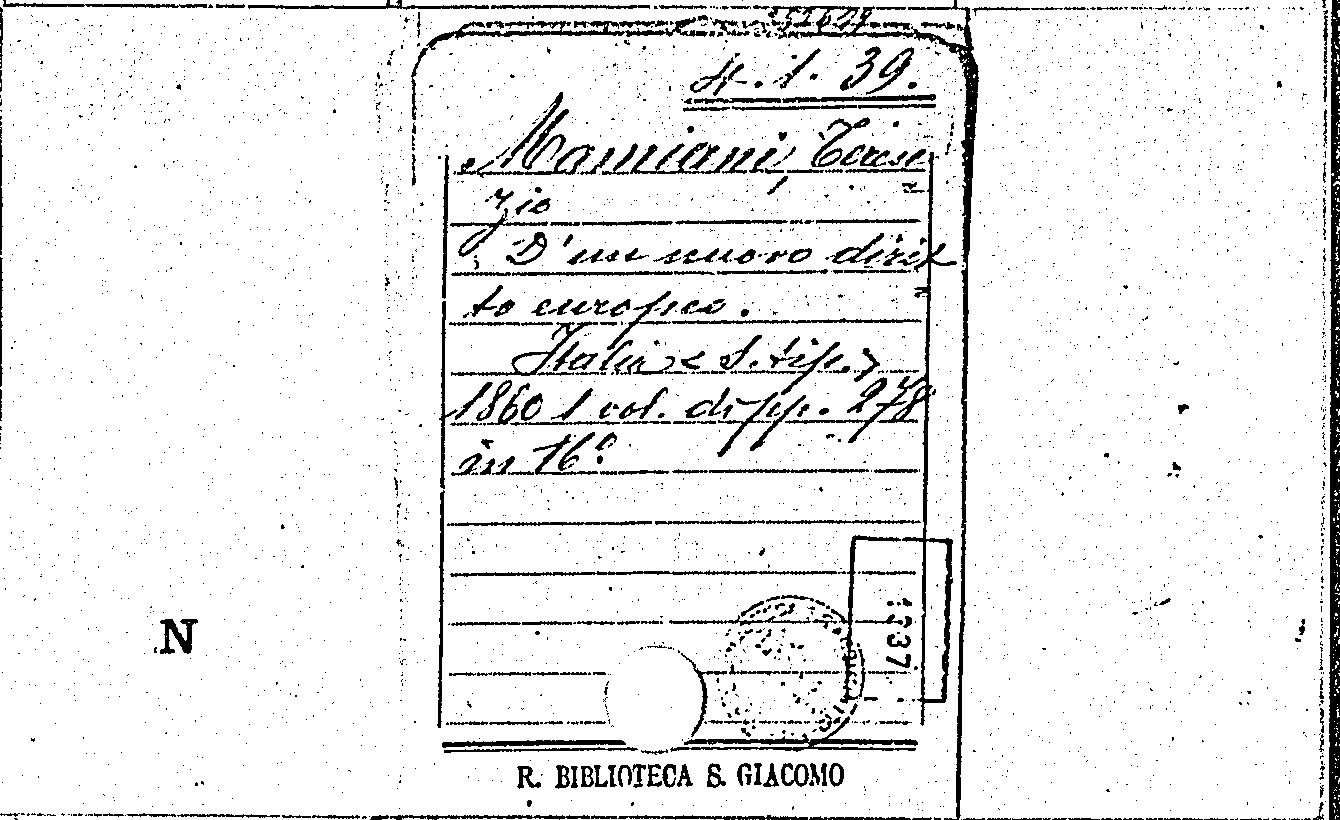 4. 1. 39.
Mamiani, Teren
zio
D'un nuovo dirit
to europeo.
Italia < S. tip. >
1860 1 vol. di pp. 278
in 16º
N
1337
R. BIBLIOTECA S. GIACOMO